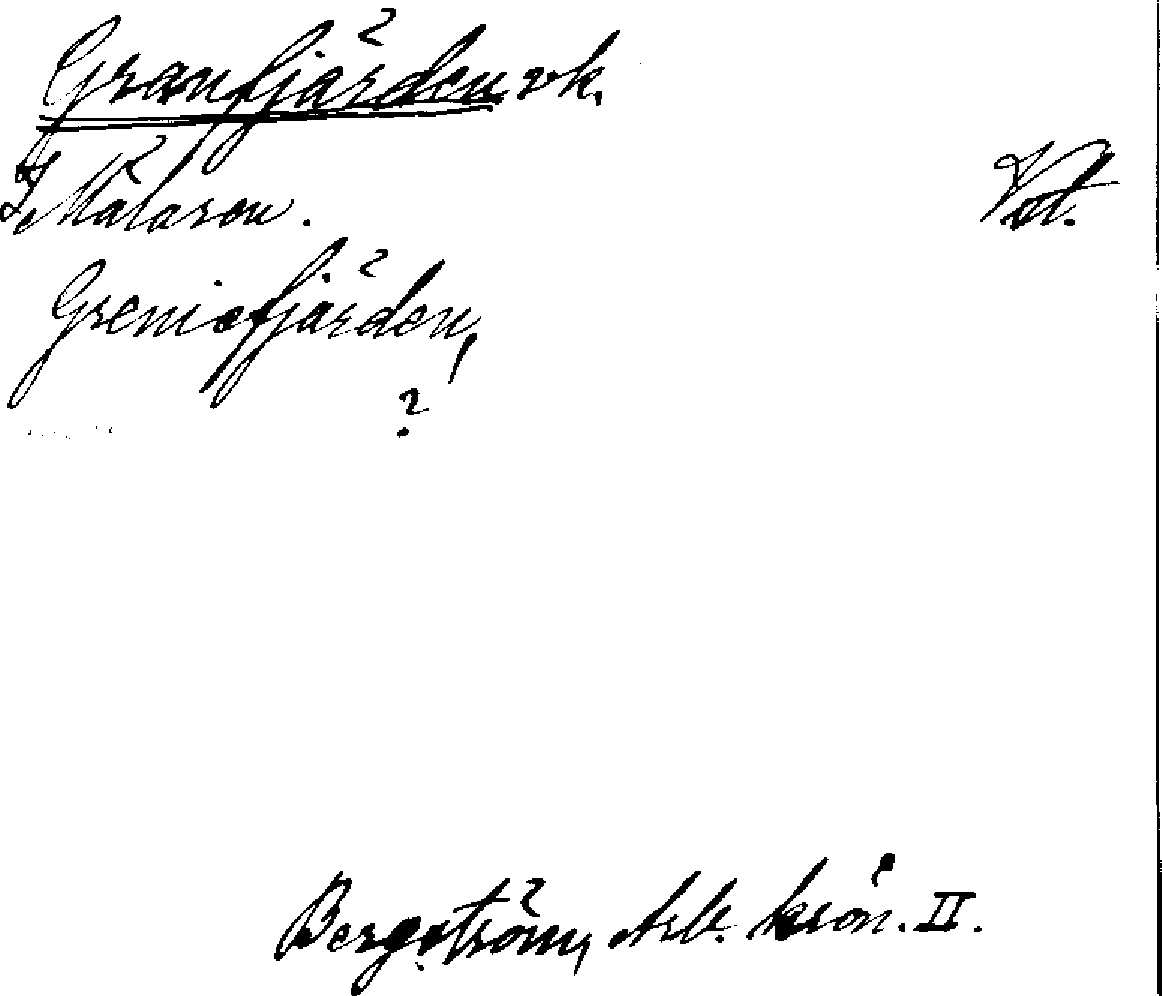 Granfjärden vk.
I Mälaren.
Vst.
Greniefjärden,
?
Bergström, Arb. krön. II.